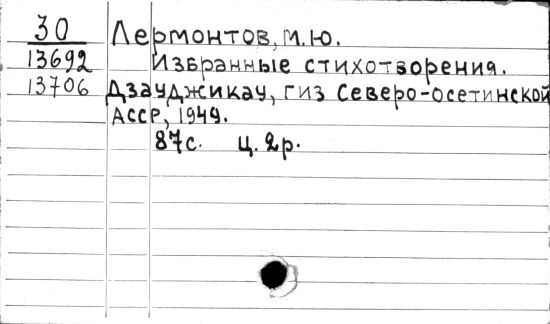 30 Лермонтов, М.Ю.
13692 Избранные стихотворения.
13706 Дзауджикау, гиз Северо-осетинской
АССР, 1949.
87с. ц. 2р.